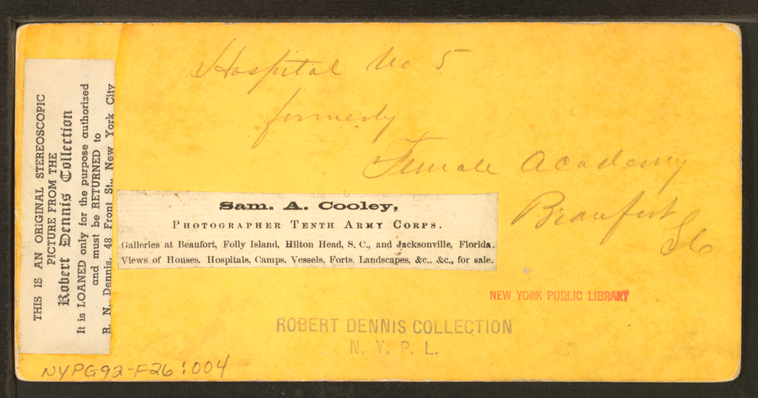 Hospital No 5
formerly
Female Academy
Beaufort
SC
THIS IS AN ORIGINAL STEREOSCOPIC
PICTURE FROM THE
Robert Dennis Collection
It is LOANED only for the purpose authorized
and must be RETURNED to
R. N. Dennis, 48 Front St., New York City
Sam. A. Cooley,
PHOTOGRAPHER TENTH ARMY CORPS.
Galleries at Beaufort, Folly Island, Hilton Head, S. C., and Jacksonville, Florida.
Views of Houses, Hospitals, Camps, Vessels, Forts, Landscapes, &c., &c., for sale.
NEW YORK PUBLIC LIBRARY
ROBERT DENNIS COLLECTION
N. Y. P. L.
NYPG92-F26:004